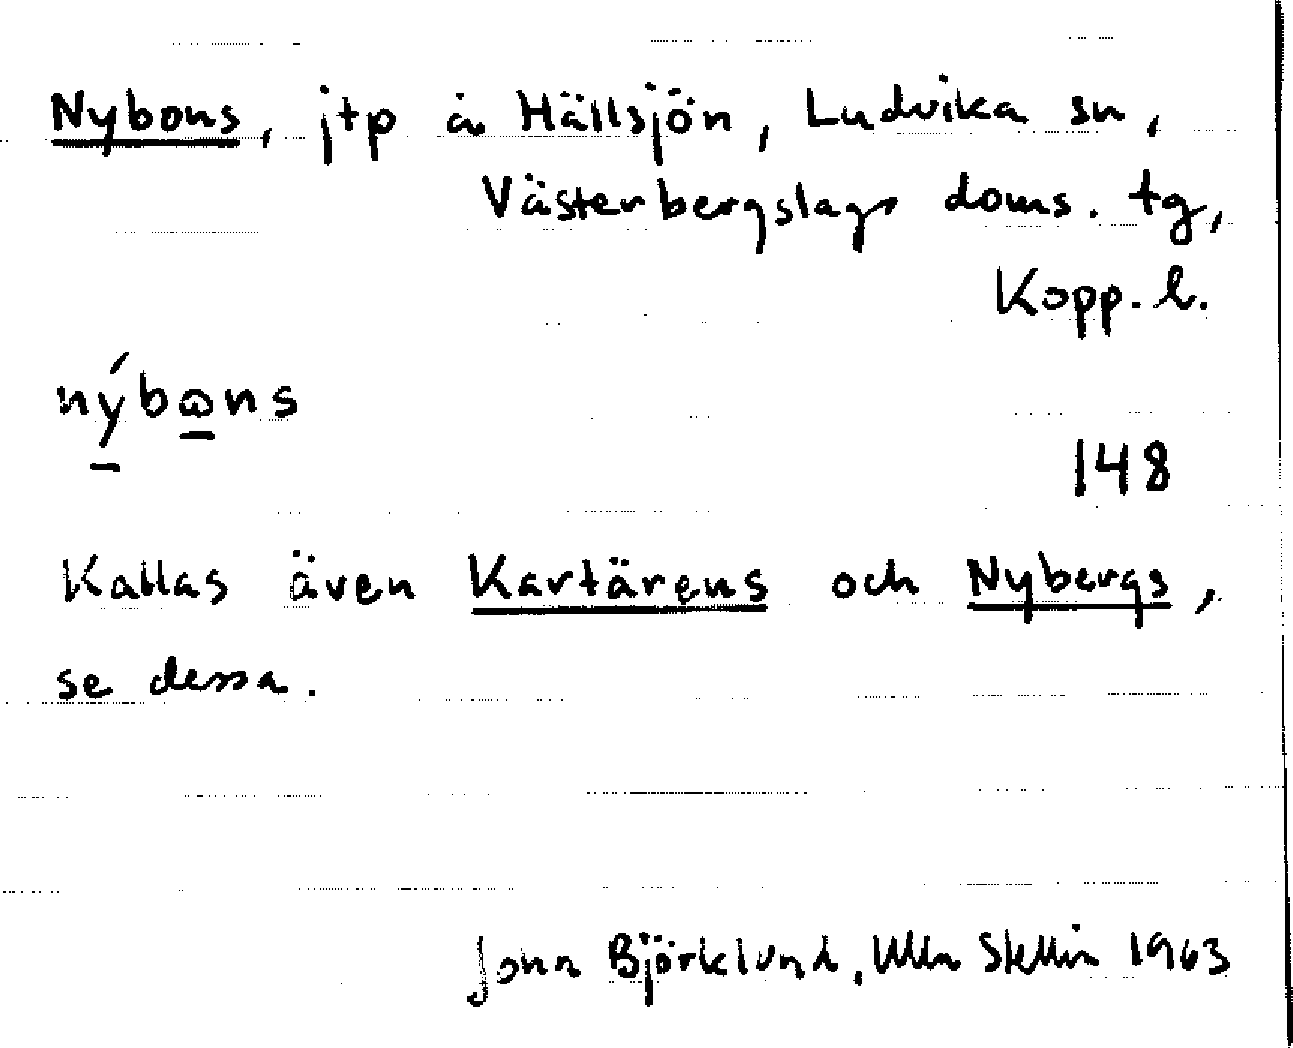 Nybons, jtp å Hällsjön, Ludvika sn,
Västerbergslags doms. tg,
Kopp. l.
nýbωns
148
Kallas även Kartärens och Nybergs,
se dessa.
John Björklund, Ulla Stellin 1963